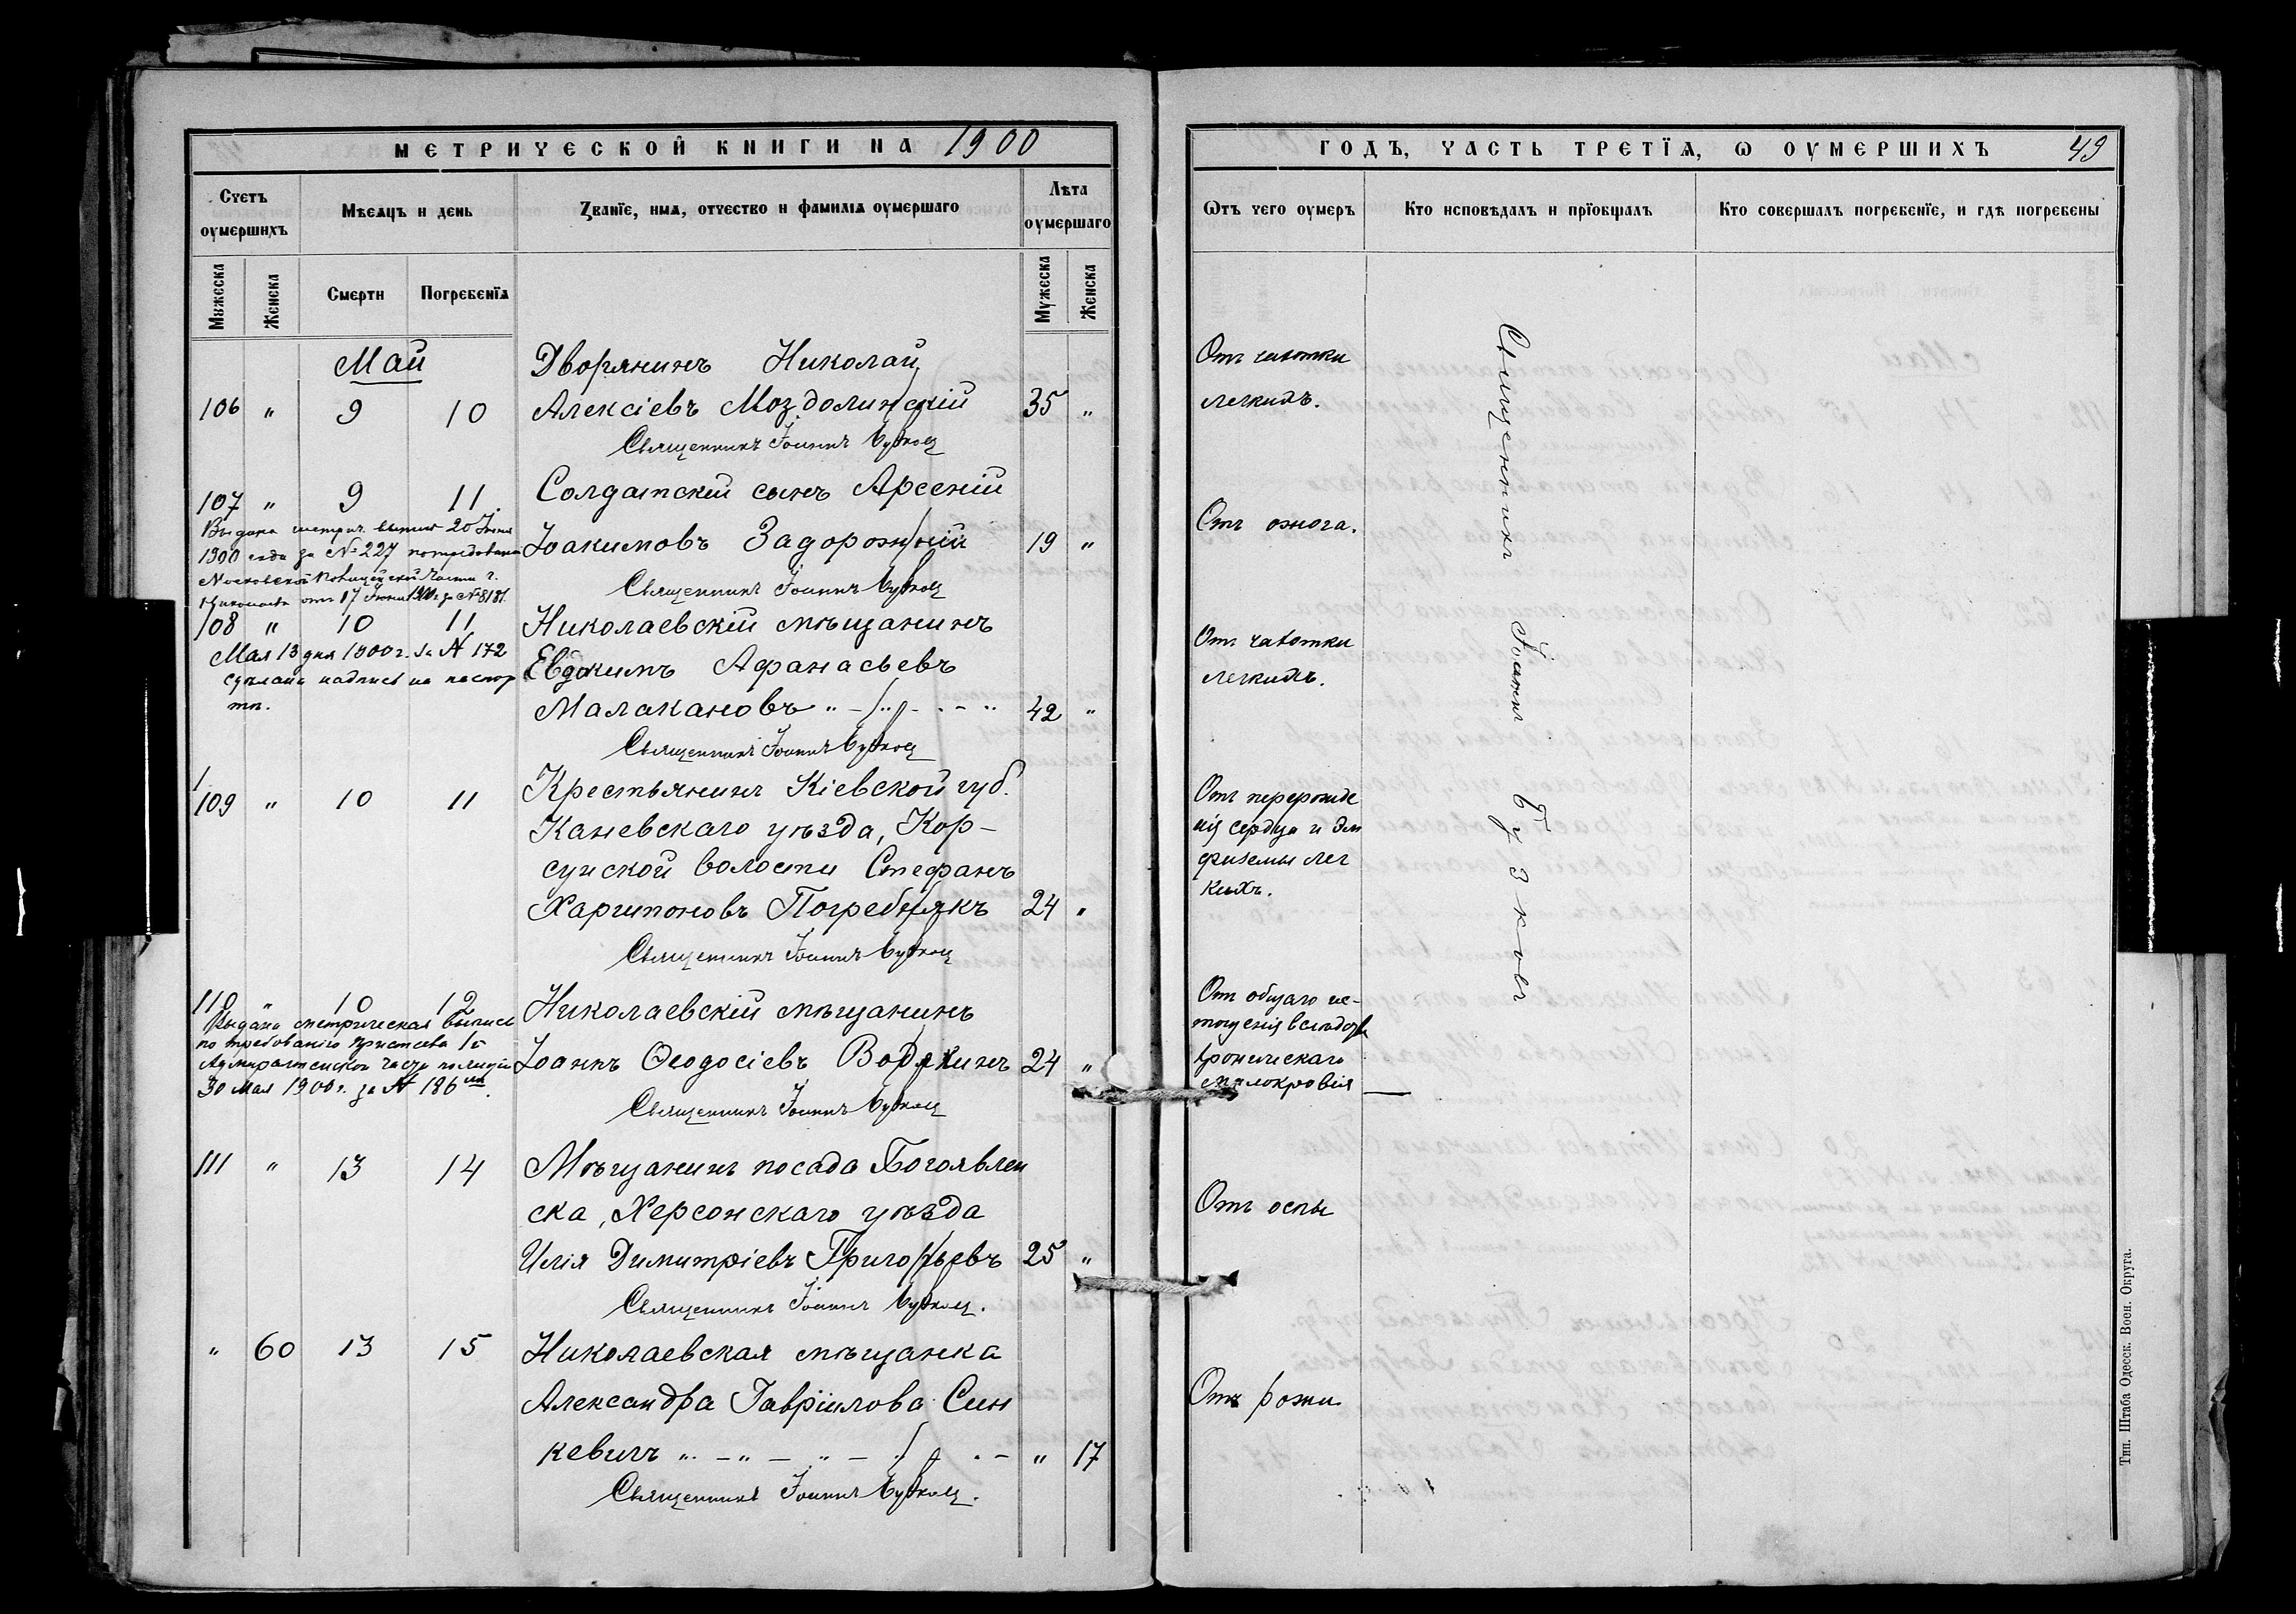 МЕТРИЧЕСКОЙ КНИГИ НА 1900
Счетъ оумершихъ
Мѣсяцъ и день
Званїе, имя, отчество и фамилїя оумершаго
Лѣта оумершаго
Мужеска
Женска
Смерти
Погребенїя
Мужеска
Женска
Май
Дворянинъ Николай
106 " 9 10 Алексіевъ Моздолинскій 35 "
Священникъ Іоаннъ
107 " 9 11. Солдатскій сынъ Арсеній
Іоакимовъ Задорожній 19 "
Выдана метрич. выпись 20 Іюня
1900 года за № 227 по требованію
Московской Полицейской части г.
Николаева отъ 17 Іюня 1900 г. за № 8181.
Священникъ Іоаннъ
108 " 10 11 Николаевскій мѣщанинъ
Мая 13 дня 1900 г. за № 172
сдѣлана надпись на паспор
тѣ.
Евдокимъ Афанасьевъ
Малакановъ " 42 "
Священникъ Іоаннъ
109 " 10 11 Крестьянинъ Кіевской губ.
Каневскаго уѣзда, Кор-
сунской волости Стефанъ
Харитоновъ Погребнякъ 24 "
Священникъ Іоаннъ
110 " 10 12 Николаевскій мѣщанинъ
Выдана метрическая выпись
по требованію пристава 1й
Адмиралтейской части полиціи
30 Мая 1900 г. за № 186
Іоаннъ Ѳеодосіевъ 24 "
Священникъ Іоаннъ
111 " 13 14 Мѣщанинъ посада Богоявлен
ска, Херсонскаго уѣзда
Илія Димитріевъ Григорьевъ 25 "
Священникъ Іоаннъ
" 60 13 15 Николаевская мѣщанка
Александра Гавріилова Син
кевичъ " " 17
Священникъ Іоаннъ
ГОДЪ, ЧАСТЬ ТРЕТЇЯ, Ѡ ОУМЕРШИХЪ 49
Ѿтъ чего оумеръ
Кто исповѣдалъ и прїобщалъ
Кто совершалъ погребенїе, и гдѣ погребены
Отъ чахотки
легкихъ.
Отъ ожога.
Отъ чахотки
легкихъ.
Отъ перерожде
нія сердца и эм
физемы лег
кихъ.
Отъ общаго ис-
тощенія вслѣдствіе
хроническаго
малокровія
Отъ оспы
Отъ рожи
Священникъ Іоаннъ
Тип. Штаба Одесск. Воен. Округа.